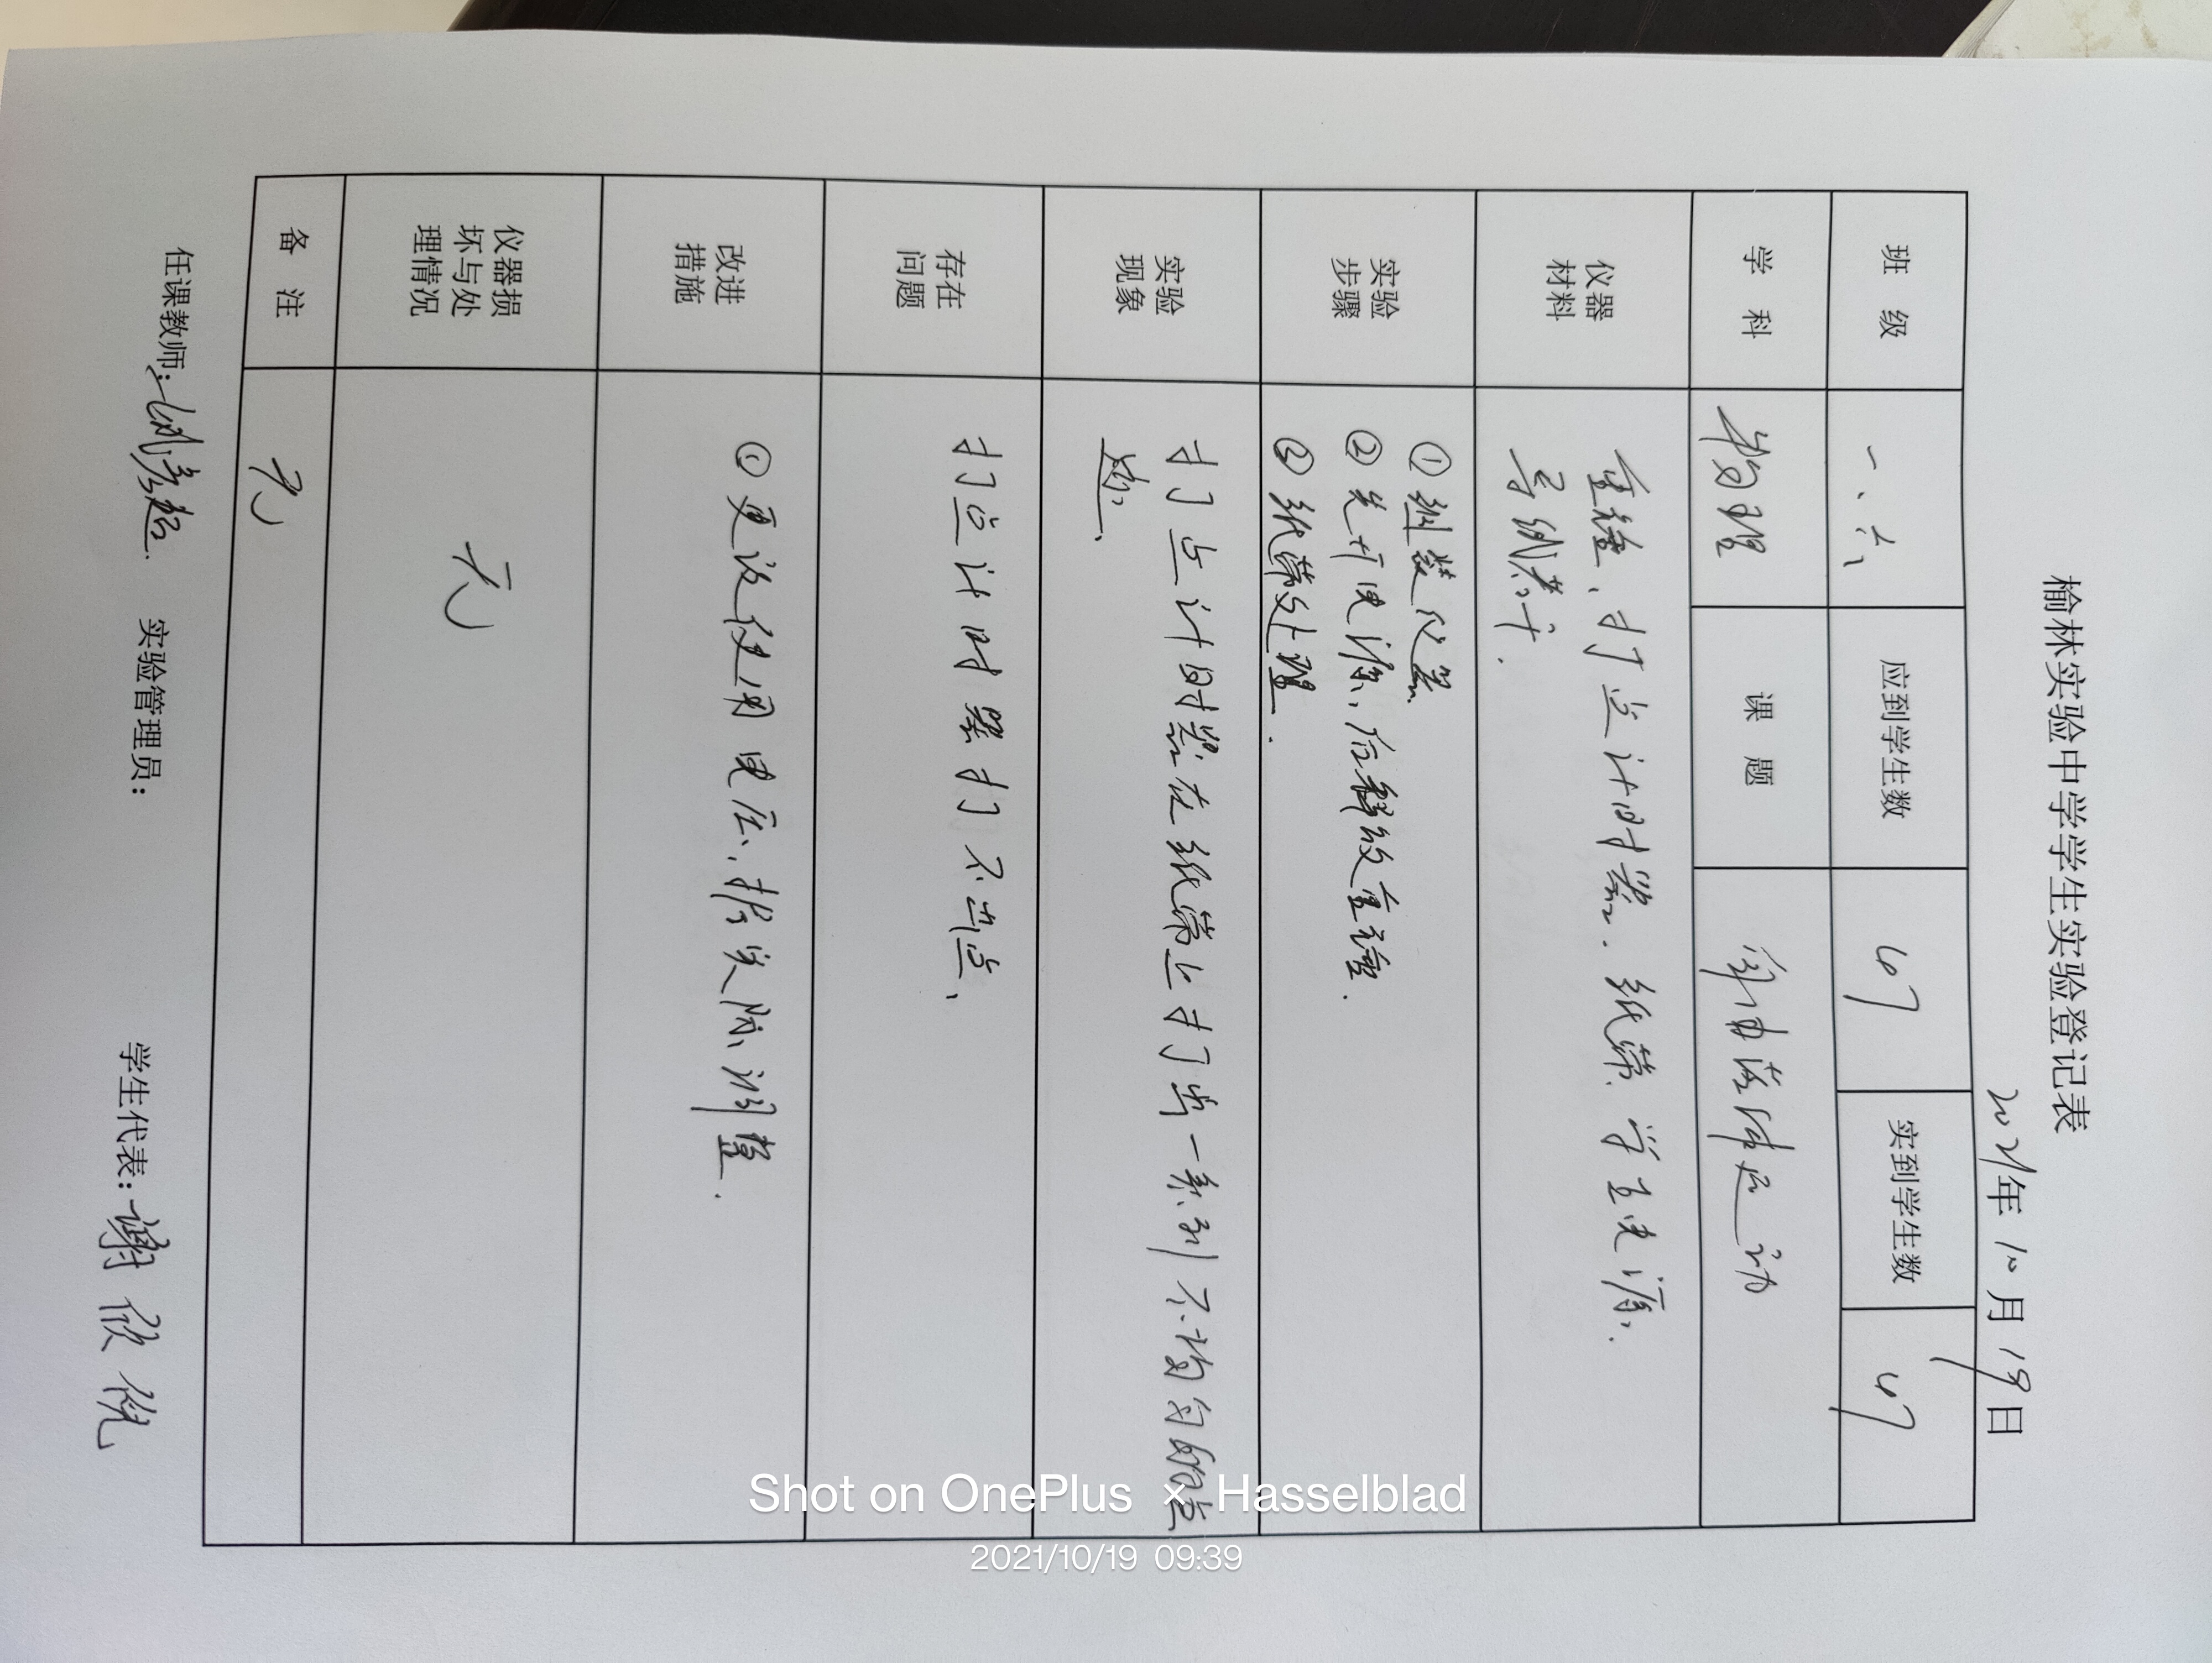 榆林实验中学学生实验登记表
2021年 10月 19日
班 级 一、六 应到学生数 67 实到学生数 67
学 科 物理 课 题 自由落体运动
仪器材料 重锤、打点计时器、纸带、学生电源、
导线若干.
实验步骤 ①组装仪器
②先开电源、后释放重锤.
③纸带处理.
实验现象 打点计时器在纸带上打出一系列不均匀的点
迹、
存在问题 打点计时器打不出点、
改进措施 ①更设使用电压、按实际调整.
仪器损坏与处理情况 无
备 注 无
任课教师: 实验管理员: 学生代表: 谢欣倪
Shot on OnePlus × Hasselblad
2021/10/19 09:39